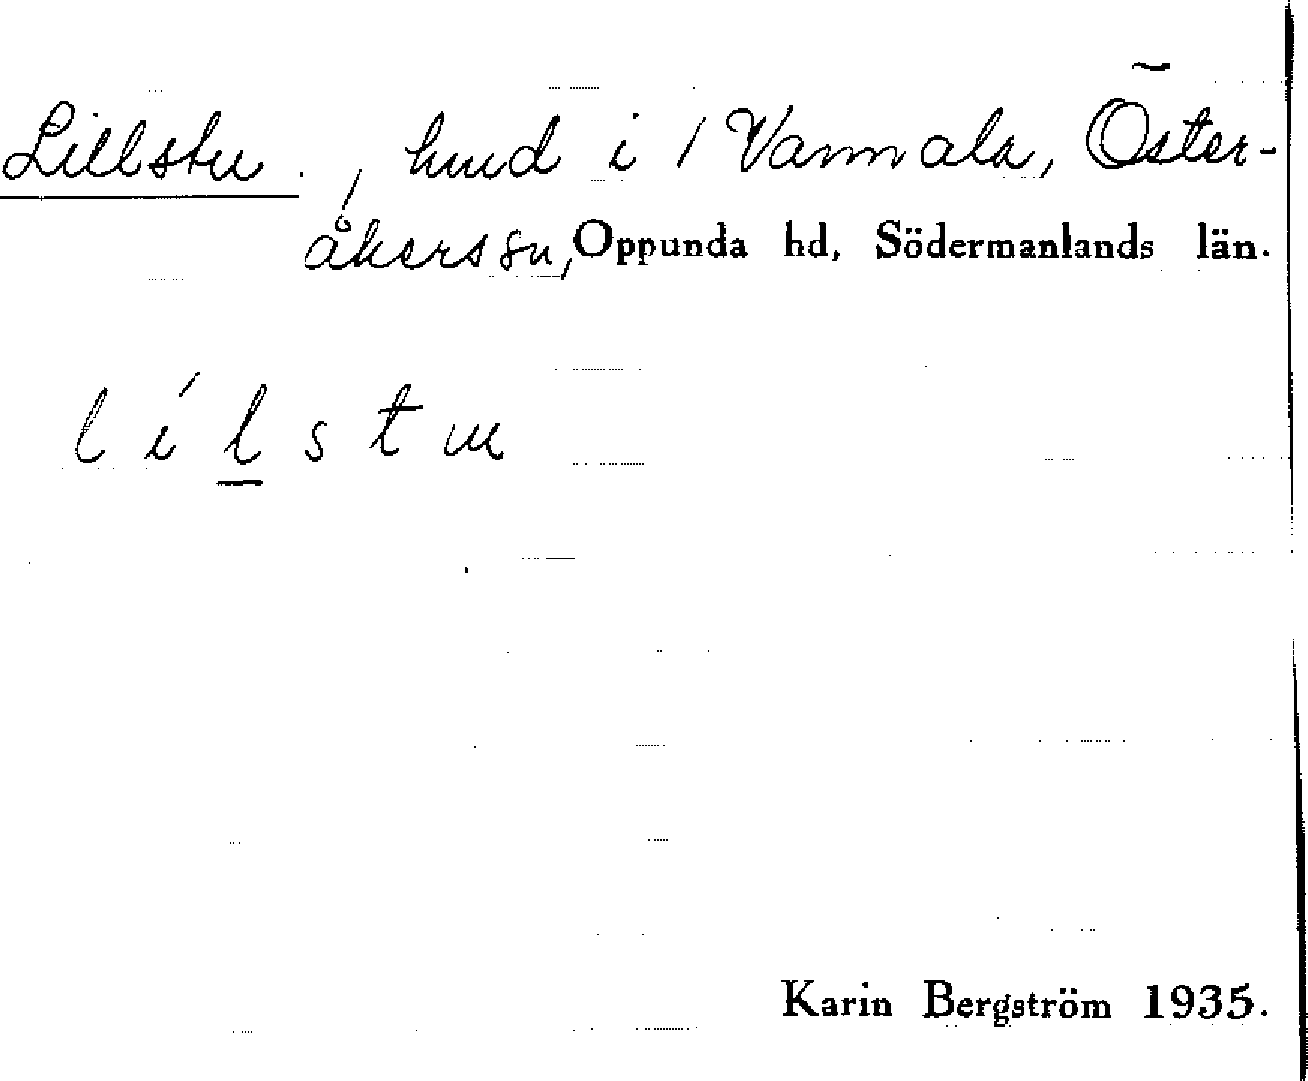 Lillstu, hmd i 1 Vannala, Öster-
åkers sn, Oppunda hd, Södermanlands län.
l í l s t u
Karin Bergström 1935.